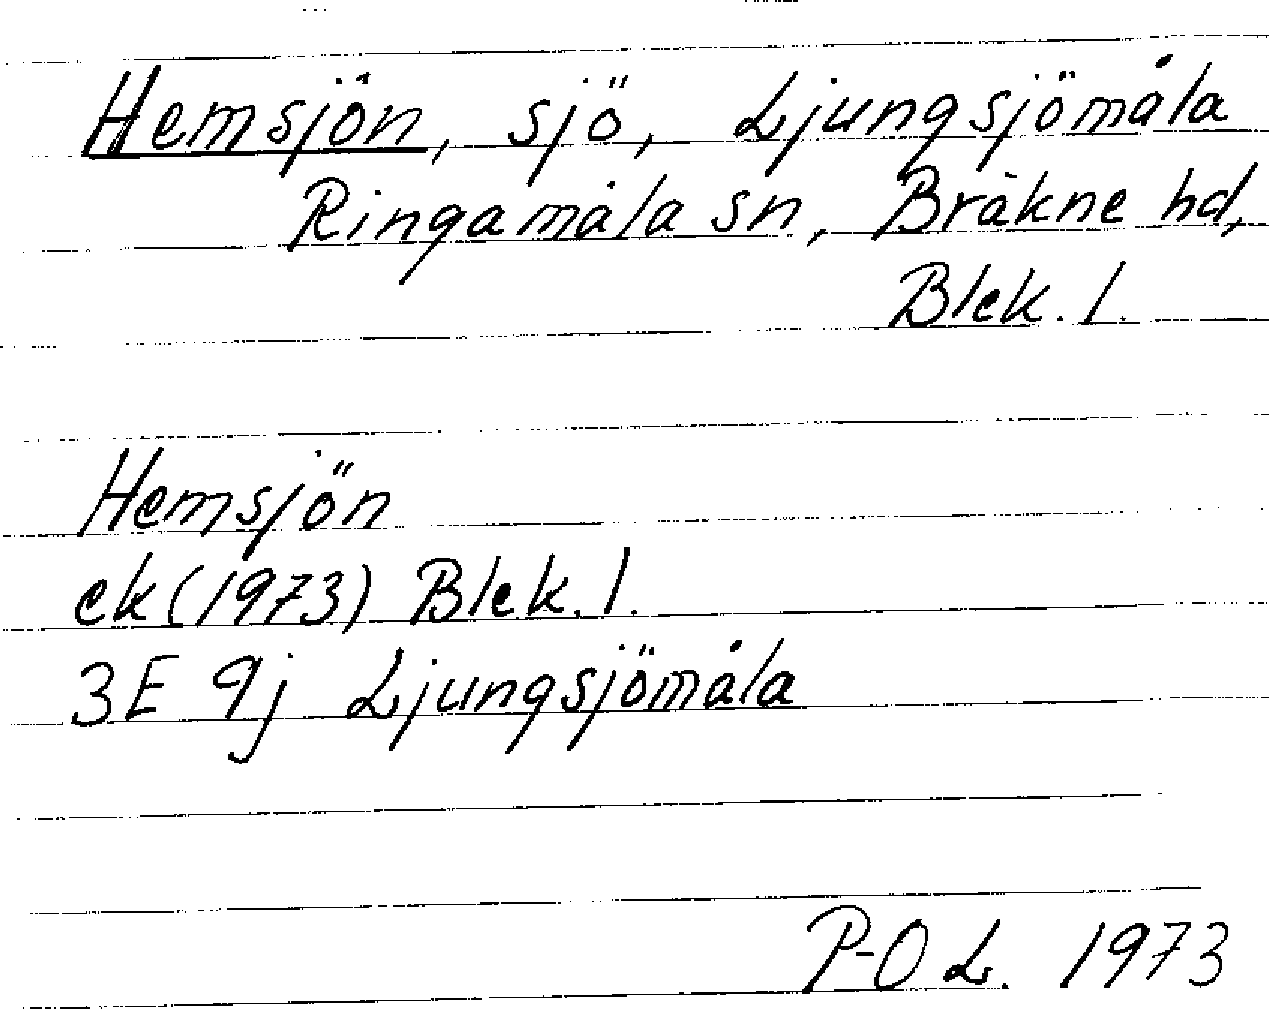 Hemsjön, sjö, Ljungsjömåla
Ringamåla sn, Bräkne hd,
Blek. l.
Hemsjön
ek (1973) Blek. l.
3E 9j Ljungsjömåla
P-O L. 1973